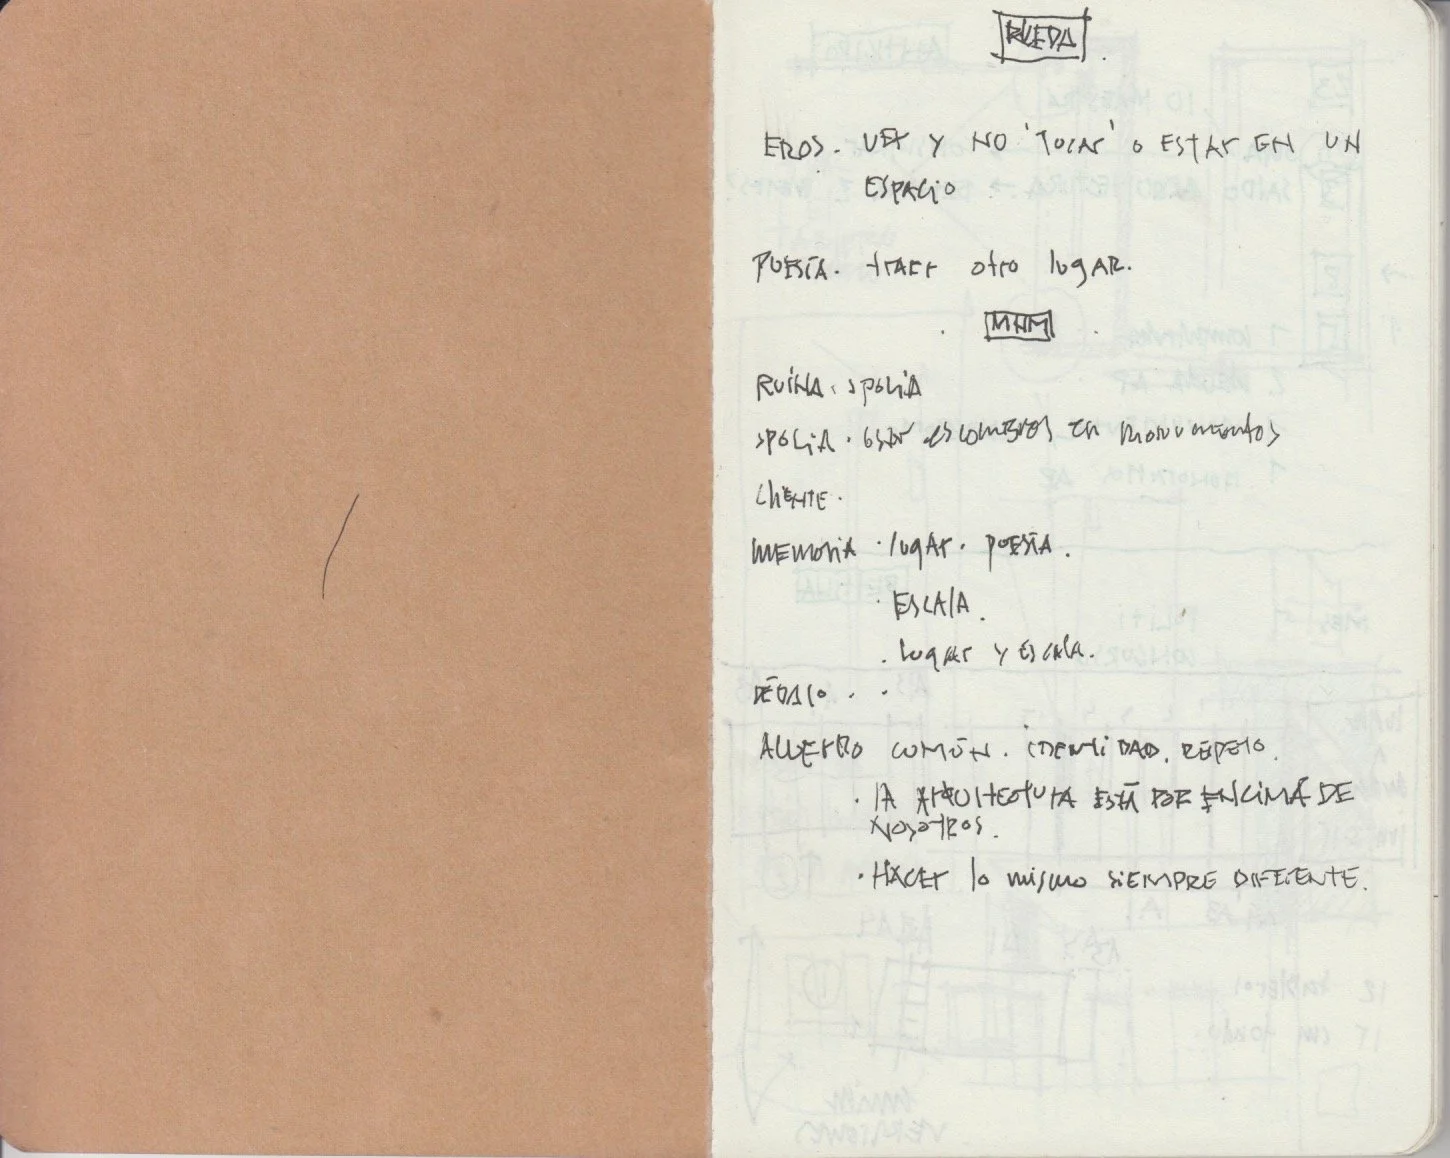 RUEDA
EROS. VER Y NO 'TOCAR' O ESTAR EN UN
ESPACIO
POESÍA. traer otro lugar.
MHM
RUINA. SPOLIA
SPOLIA. USAR escombros en monumentos
cliente.
MEMORIA · lugar. POESÍA.
· ESCALA.
· lugar y ESCALA.
DÉDALO. .
ACUERDO COMÚN. IDENTIDAD.
· LA ARQUITECTURA ESTÁ POR ENCIMA DE
NOSOTROS.
· HACER lo mismo SIEMPRE DIFERENTE.